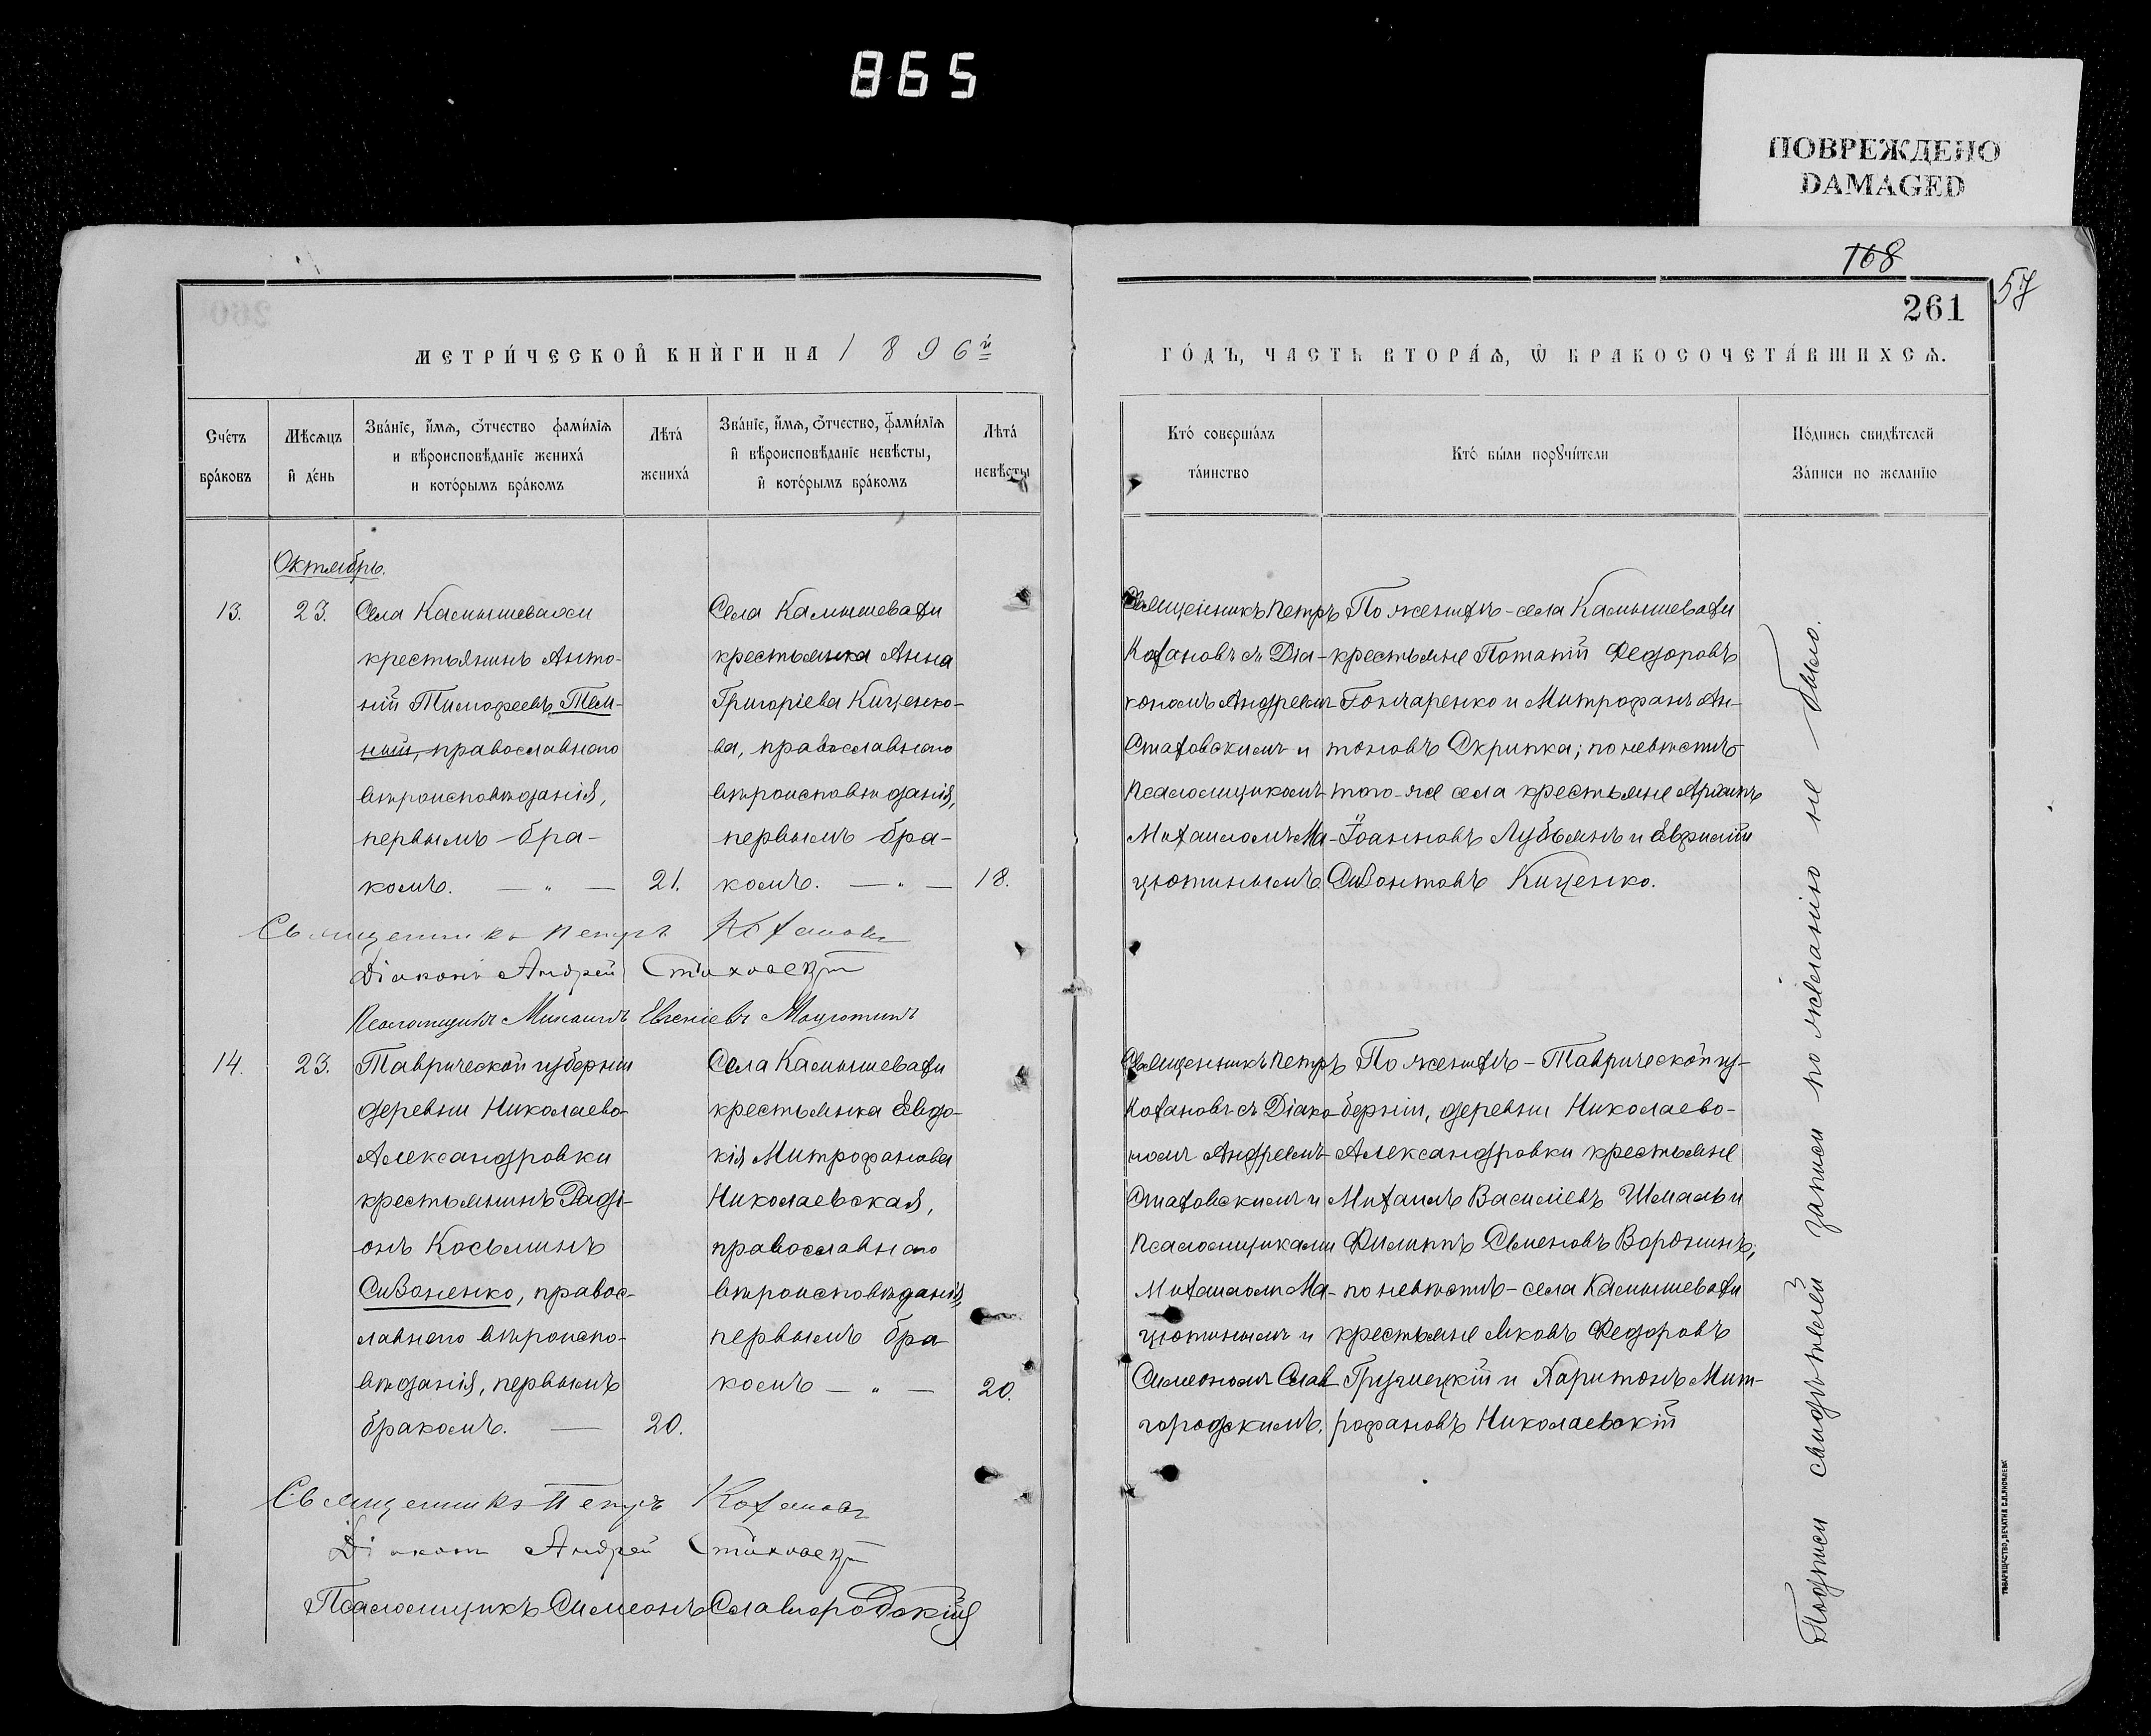 865
ПОВРЕЖДЕНО
DAMAGED
168
261
57
МЕТРИ́ЧЕСКОЙ КНИ́ГИ НА 1896й
ГО́ДЪ, ЧАСТЬ ВТОРА́Ѧ, Ѡ БРАКОСОЧЕТА́ВШИХСѦ.
Сче́тъ
бра́ковъ
Мѣсѧцъ
й де́нь
Зва́нїе, и́мѧ, о́тчество фами́лїѧ
и вѣроисповѣданїе жениха́
и кото́рымъ бра́комъ
Лѣта́
жениха́
Зва́нїе, и́мѧ, о́тчество, фами́лїѧ
й вѣроисповѣданїе невѣсты,
й кото́рымъ бра́комъ
Лѣта́
невѣсты
Кто́ соверша́лъ
та́инство
Кто́ бы́ли порꙋчи́тели
По́дпись свидѣтелей
За́писи по желанїю
Октябрь.
13.
23.
Села Камышевахи
крестьянинъ Анто-
ній Тимофеевъ Тем-
ный, православнаго
вѣроисповѣданія,
первымъ бра-
комъ. — „ —
21.
Села Камышевахи
крестьянка Анна
Григоріева Киценко-
ва, православнаго
вѣроисповѣданія,
первымъ бра-
комъ. — „ —
18.
Священникъ Петръ
Кохановъ съ Діа-
кономъ Андреемъ
Стаховскимъ и
Псаломщикомъ
Михаиломъ Ма-
цютинымъ
По женихѣ - села Камышевахи
крестьяне Потапій Федоровъ
Гончаренко и Митрофанъ Ан-
тоновъ Скрипка; по невѣстѣ
того-же села крестьяне
Іоанновъ Лубянъ и Евфимій
Киценко.
Священникъ Петръ Кохановъ
Діаконъ Андрей Стаховскій
Псаломщикъ Михаилъ Евгеніевъ Мацютинъ
14.
23.
Таврической губерніи
деревни Николаево-
Александровки
крестьянинъ Раді-
онъ Косьминъ
Сизоненко, правос-
лавнаго вѣроиспо-
вѣданія, первымъ
бракомъ. —
20.
Села Камышевахи
крестьянка Евдо-
кія Митрофанова
Николаевская,
православнаго
вѣроисповѣданія,
первымъ бра
комъ — „ —
20.
Священникъ Петръ
Кохановъ съ Діако-
номъ Андреемъ
Стаховскимъ и
Псаломщиками
Михаиломъ Ма-
цютинымъ и
Симеономъ Слав
городскимъ.
По женихѣ - Таврической гу-
берніи, деревни Николаево-
Александровки крестьяне
Михаилъ Василіевъ Шмаль и
Филиппъ Семеновъ Воронинъ;
по невѣстѣ - села Камышевахи
крестьяне Яковъ Федоровъ
и Харитонъ Мит-
рофановъ Николаевскій
Подписи свидѣтелей записи по желанію не было.
Священникъ Петръ Кохановъ
Діаконъ Андрей Стаховскій
Псаломщикъ Симеонъ Славгородскій